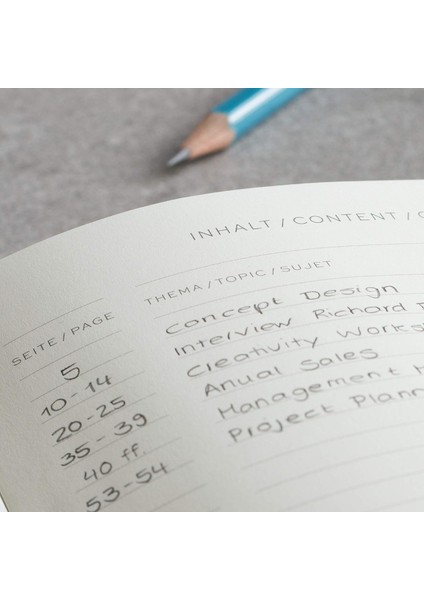 INHALT / CONTENT /
SEITE / PAGE THEMA / TOPIC / SUJET
5 Concept Design
10-14 Interview Richard
20-25 Creativity Works
35-39 Anual Sales
40 ff. Management
53-54 Project Plann